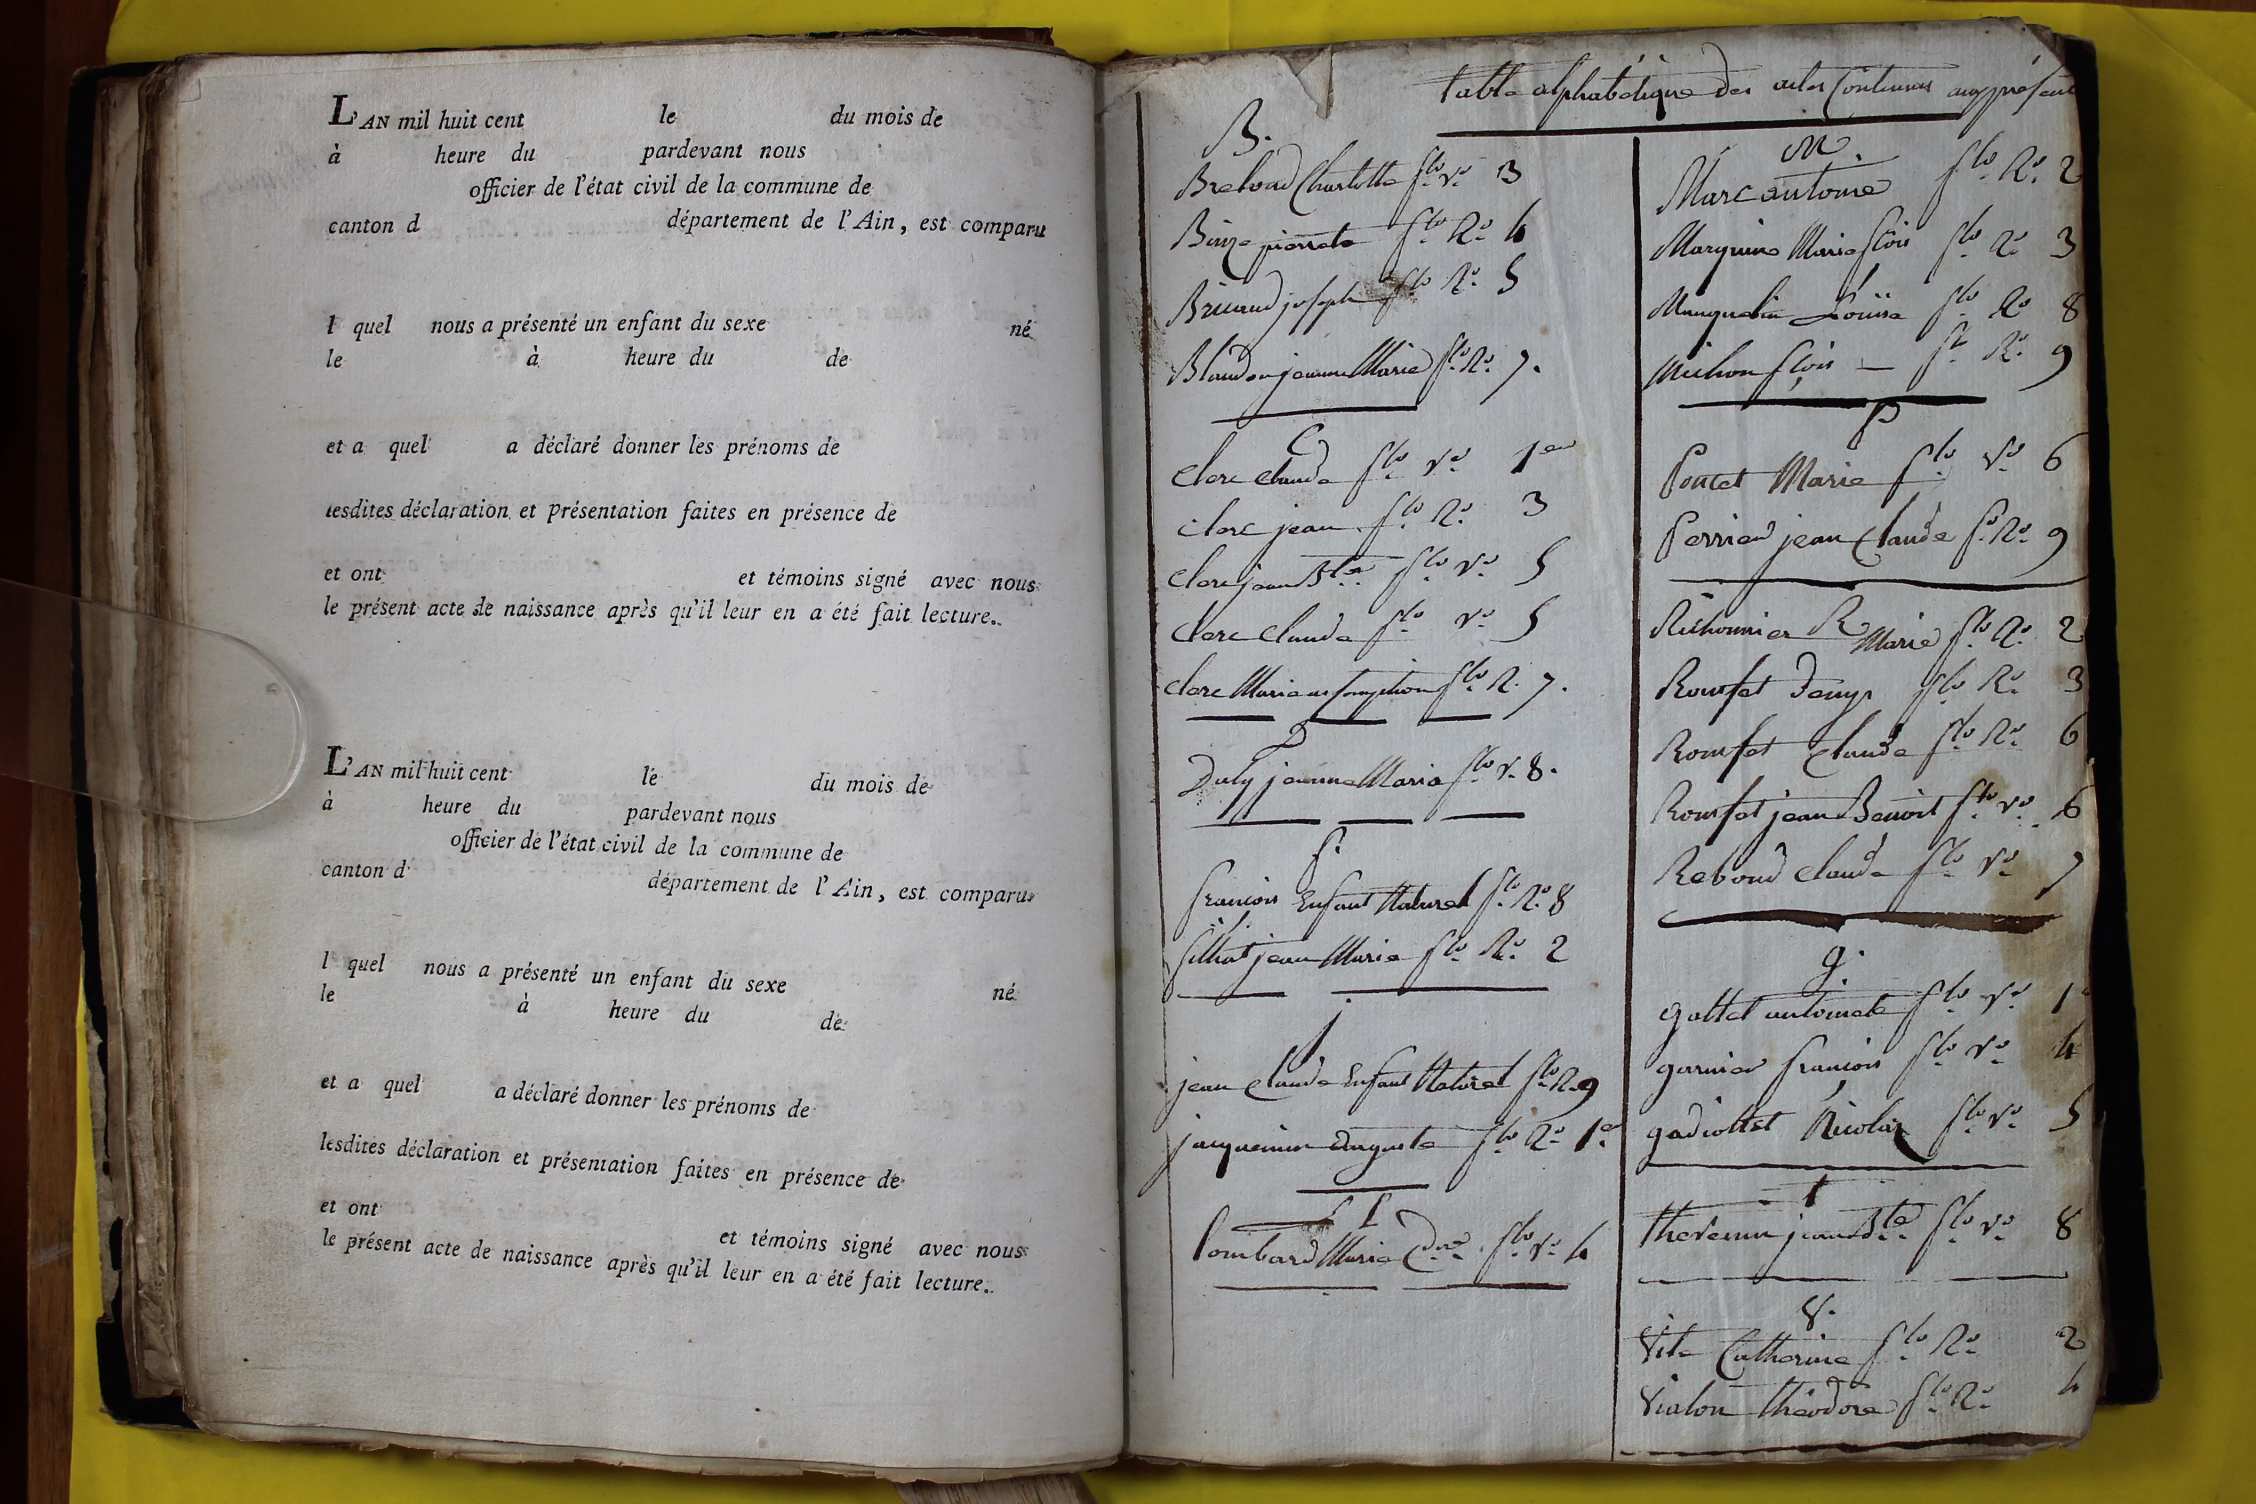 L'AN mil huit cent le du mois de
à heure du pardevant nous
officier de l'état civil de la commune de
canton d département de l'Ain, est comparu
l quel nous a présenté un enfant du sexe né
le à heure du de
et a quel a déclaré donner les prénoms de
lesdites déclaration et présentation faites en présence de
et ont et témoins signé avec nous
le présent acte de naissance après qu'il leur en a été fait lecture.
L'AN mil huit cent le du mois de
à heure du pardevant nous
officier de l'état civil de la commune de
canton d département de l'Ain, est comparu
l quel nous a présenté un enfant du sexe né
le à heure du de
et a quel a déclaré donner les prénoms de
lesdites déclaration et présentation faites en présence de
et ont et témoins signé avec nous
le présent acte de naissance après qu'il leur en a été fait lecture.
Table alphabétique des actes Contenus au présent
B.
Charlotte flo vo 3
pierrette flo Ro 4
joseph flo Ro 5
jeanne Marie flo Ro 7.
C
Clerc Claude flo vo 1er
Clerc jean flo Ro 3
Clerc jean Bte flo vo 5
Clerc Claude flo vo 5
Clerc Marie assomption flo R. 7.
D
Duby jeanne Marie flo v. 8.
f.
françois Enfant Naturel flo Ro 8
fillhat jean Marie flo Ro 2
j
jean Claude Enfant Naturel flo R. 9
jacquemin auguste flo Ro 1er
l
Lombard Marie flo vo 4
M
Marc antoine flo Ro 2
Marie fçois flo Ro 3
Louise flo Ro 8
Michon fçois — flo Ro 9
P
Poncet Marie flo vo 6
Perrier jean Claude fo Ro 9
R
Richonnier Marie flo Ro 2
Rousset Denys flo Ro 3
Rousset Claude flo Ro 6
Rousset jean Benoit flo vo 6
Reboud Claude flo vo 7
g.
gottet antoinete flo vo 1
garnier françois flo vo 4
gadiollet Nicolas flo vo 5
t
thevenin jean Bte flo vo 8
V.
Vite Catherine flo Ro 2
Vialon théodore flo Ro 4